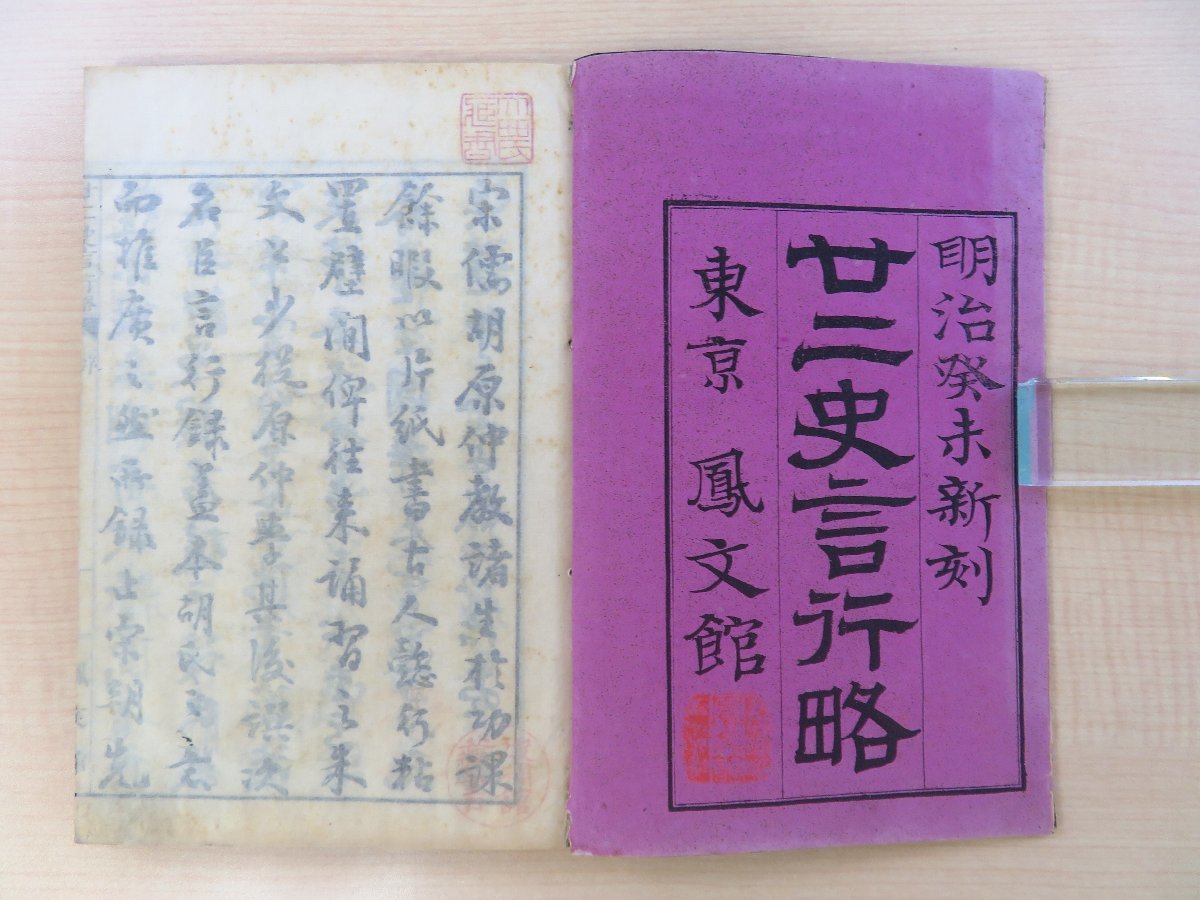 明治癸未新刻
廿二史言行略
東京 鳳文館
宋儒胡原仲教諸生於功課
餘暇以片紙書古人懿行粘
置壁間俾往来誦習之朱
文公少從原仲學其後譔次
名臣言行録蓋本胡氏之意
而推廣之然所録止宋朝先